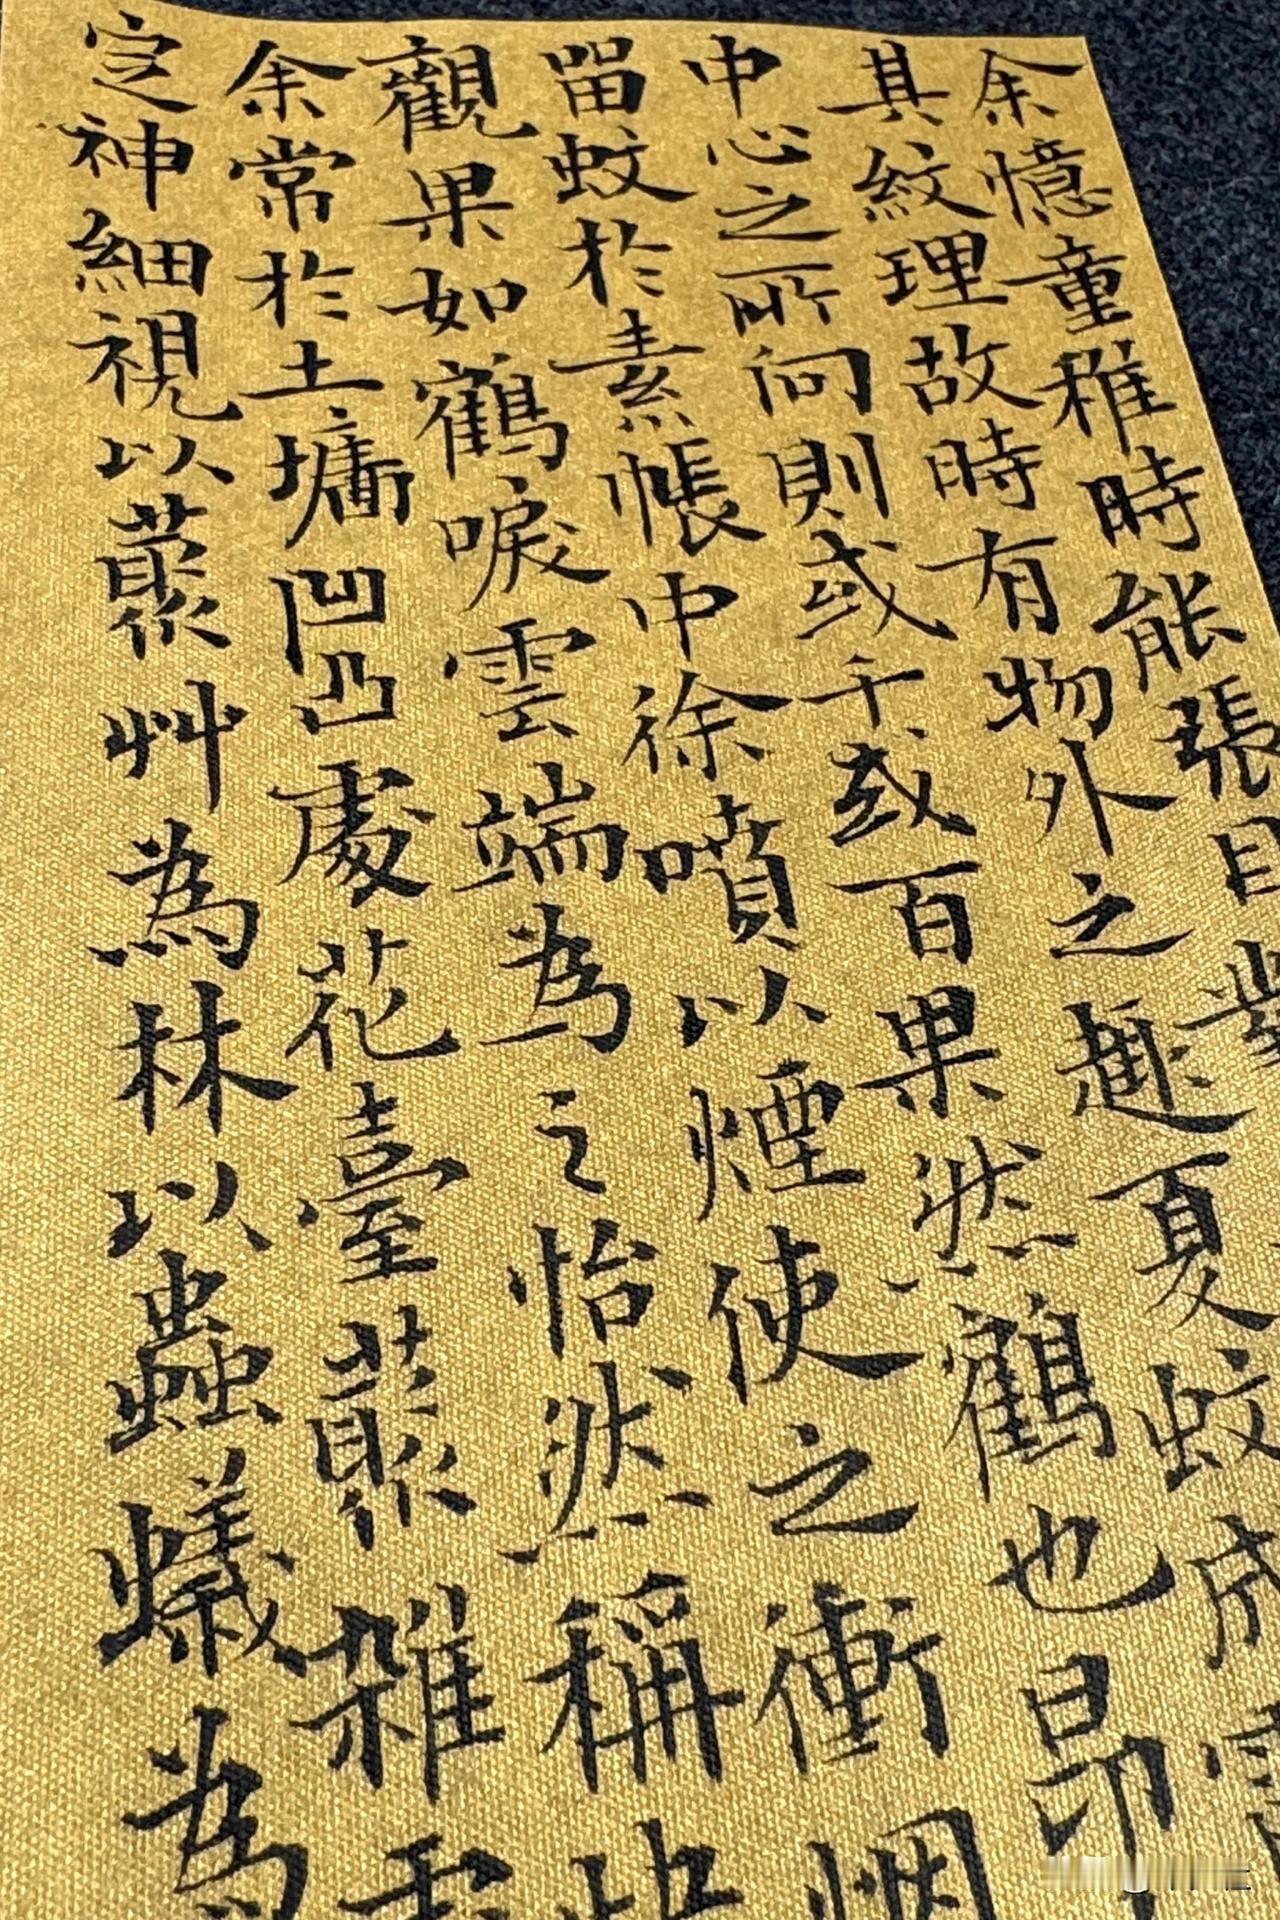 余憶童稚時能張目對
其紋理故時有物外之趣夏蚊成雷
中心之所向則或千或百果然鶴也昂
留蚊於素帳中徐噴以煙使之衝烟
觀果如鶴唳雲端為之怡然稱快
余常於土墻凹凸處花臺叢雜
定神細視以叢艸為林以蟲蟻為